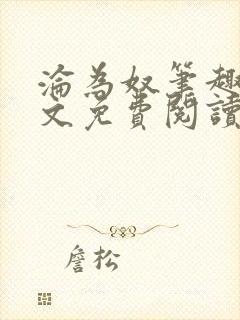 淪為奴筆趣
文免費閱讀
詹松